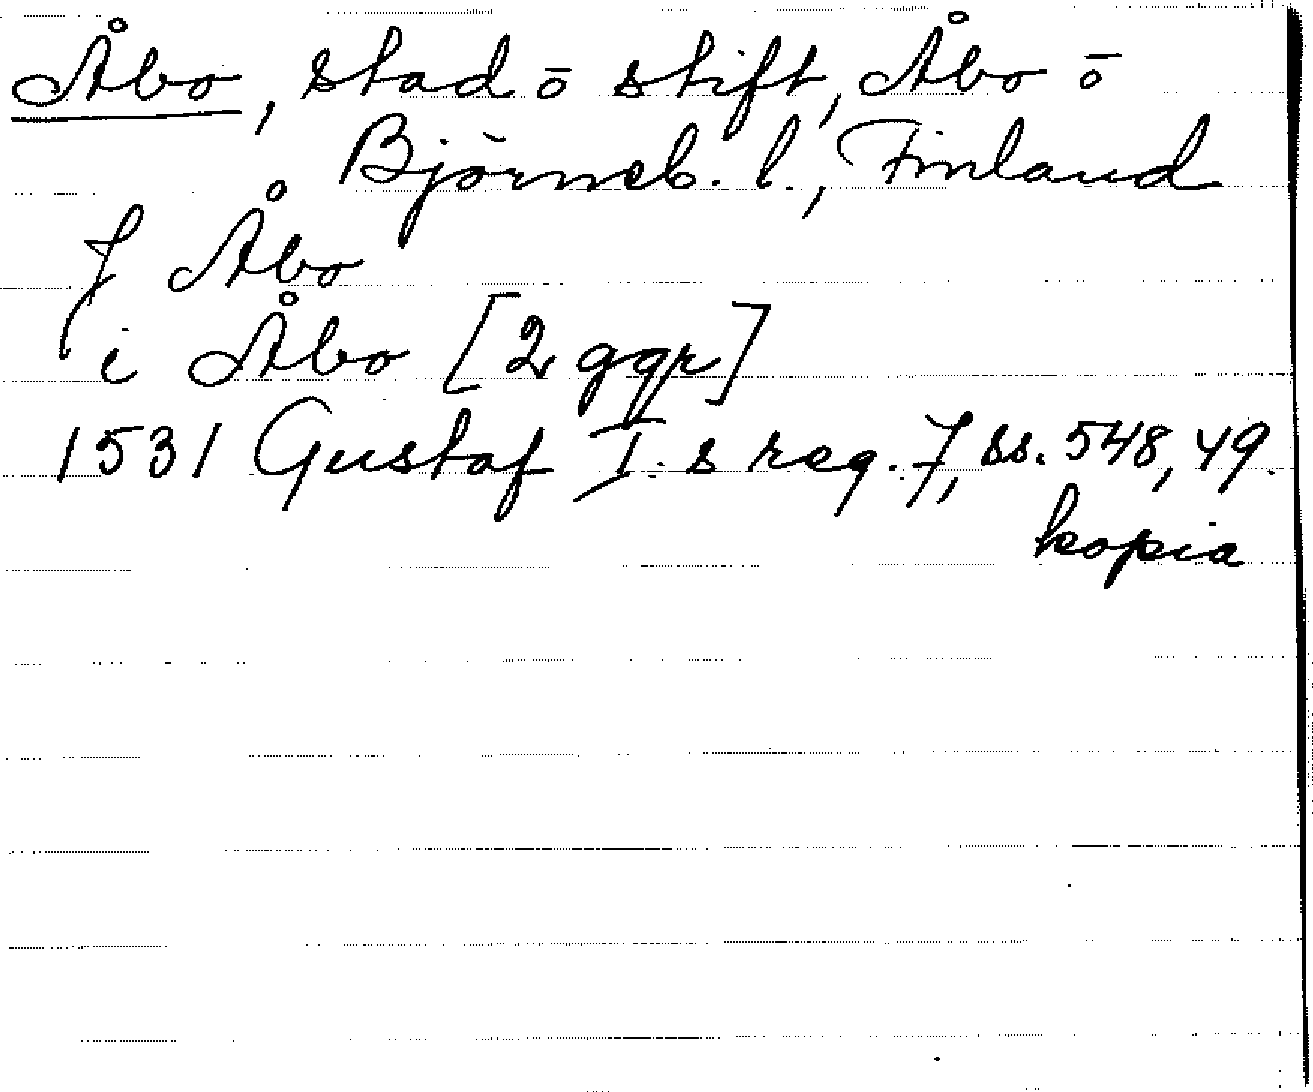 Åbo, stad ō stift, Åbo ō
Björneb. l., Finland
J Åbo
i Åbo [2 ggr]
1531 Gustaf I.s reg. 7, ss. 548, 49.
kopia